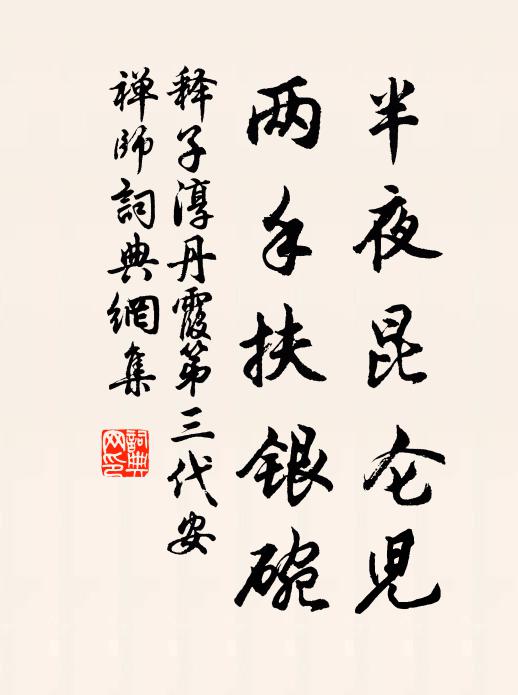 半夜昆仑児
两手扶银碗
释子淳丹霞第三代安
禅师詞典網集
詞典网印